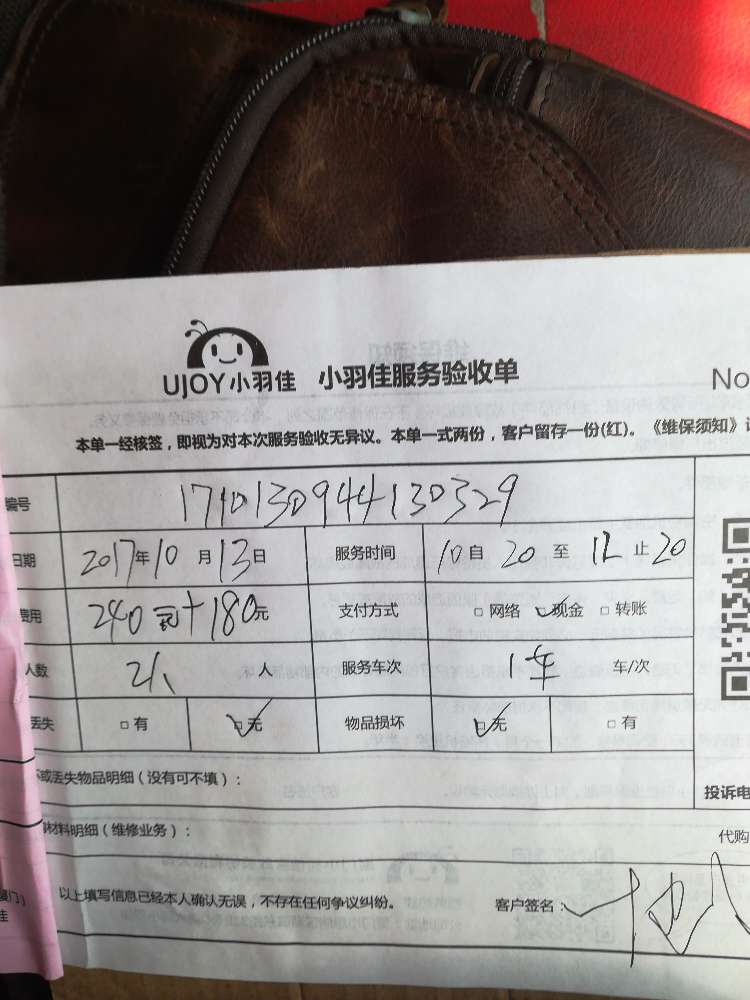 UJOY小羽佳 小羽佳服务验收单
No
本单一经核签，即视为对本次服务验收无异议。本单一式两份，客户留存一份(红)。《维保须知》
编号 1710130944130329
日期 2017年10月13日 服务时间 10自20至12止20
费用 240元+180元 支付方式 □网络 ✓现金 □转账
人数 2人 人 服务车次 1车 车/次
丢失 □有 ✓无 物品损坏 ✓无 □有
或丢失物品明细（没有可不填）：
投诉电
材料明细（维修业务）：
代购
厦门）
佳
以上填写信息已经本人确认无误，不存在任何争议纠纷。 客户签名：